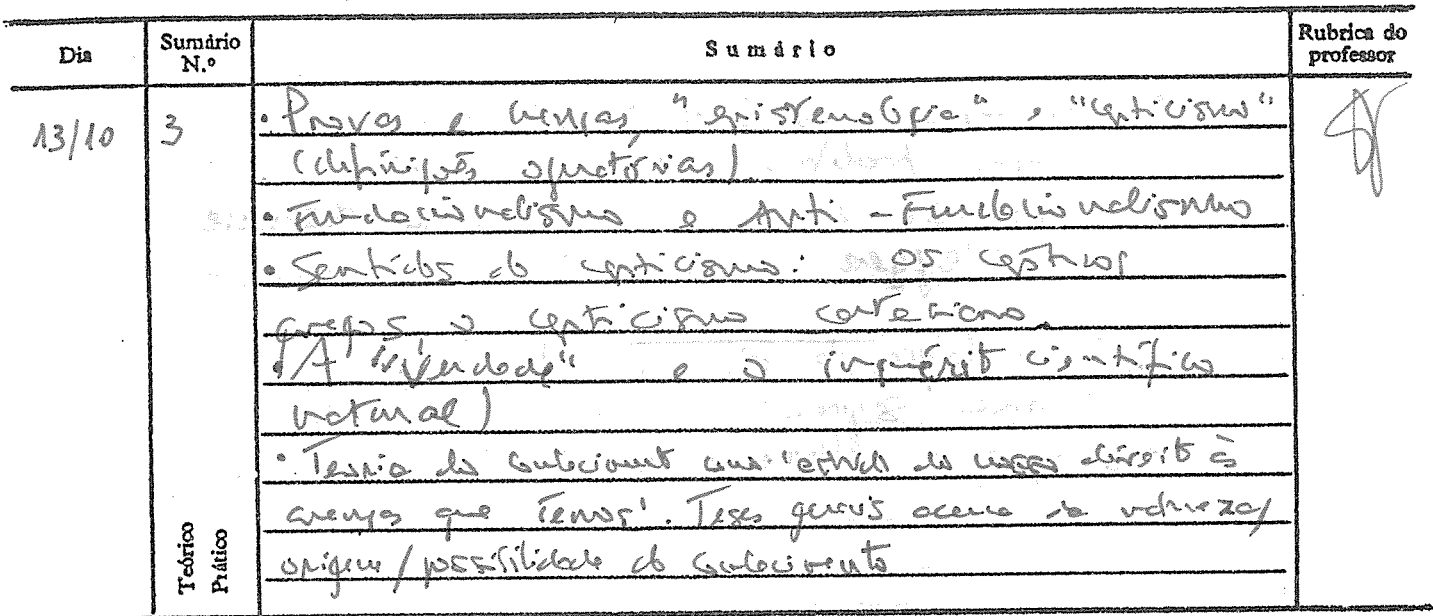 Dia
Sumário N.º
Sumário
Rubrica do professor
13/10
3
• Provas e crenças, "epistemologia" e "cepticismo"
(definições operatórias)
• Fundacionalismo e Anti-Fundacionalismo
• Sentidos do cepticismo: os cépticos
gregos o cepticismo cartesiano.
(A "Verdade" e o inquérito científico
natural)
• Teoria do Conhecimento como 'estudo do nosso direito às
crenças que temos'. Teses gerais acerca da natureza/
origem/possibilidade do conhecimento
Teórico
Prático